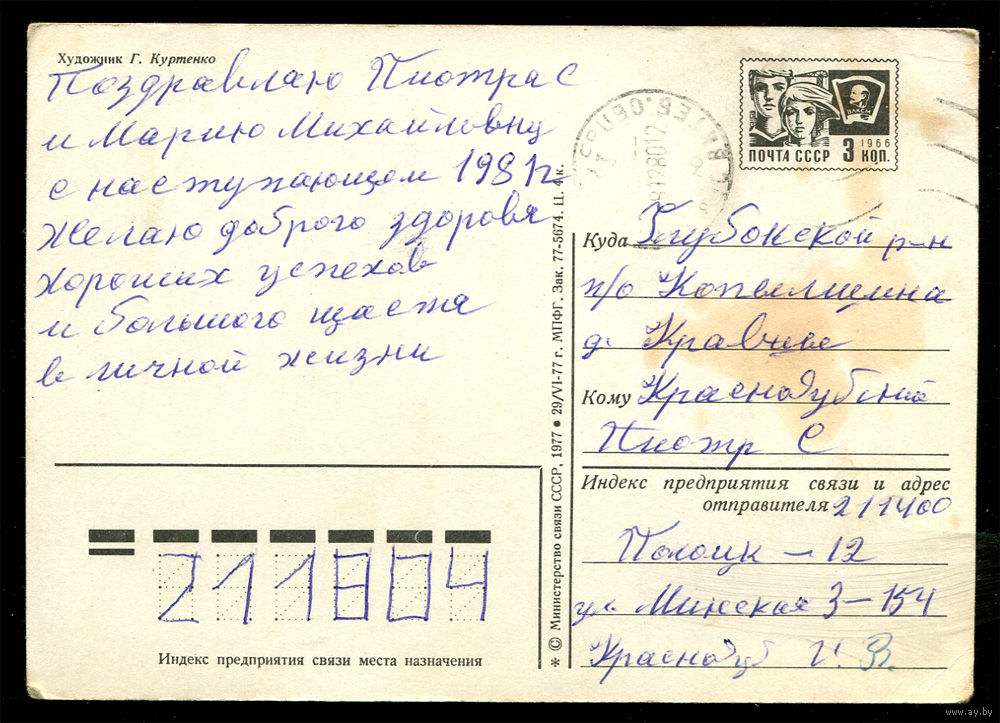 Художник Г. Куртенко
Поздравлаю Пиотра С
и Марию Михайловну
с наступающим 1981г
желаю доброго здоровя
хороших успехов
и большого щастя
в личной жизни
ПОЧТА СССР 3 КОП.
1966
ВЛКСМ
Куда Глубокской р-н
п/о
д.
Кому Краснодубский
Пиотр С
Индекс предприятия связи и адрес
отправителя 211400
Полоцк – 12
ул. Минская 3–154
Краснодуб
211804
Индекс предприятия связи места назначения
* © Министерство связи СССР, 1977 ● 29/VI-77 г. МПФГ. Зак. 77-5674. Ц. 4 к.
www.ay.by